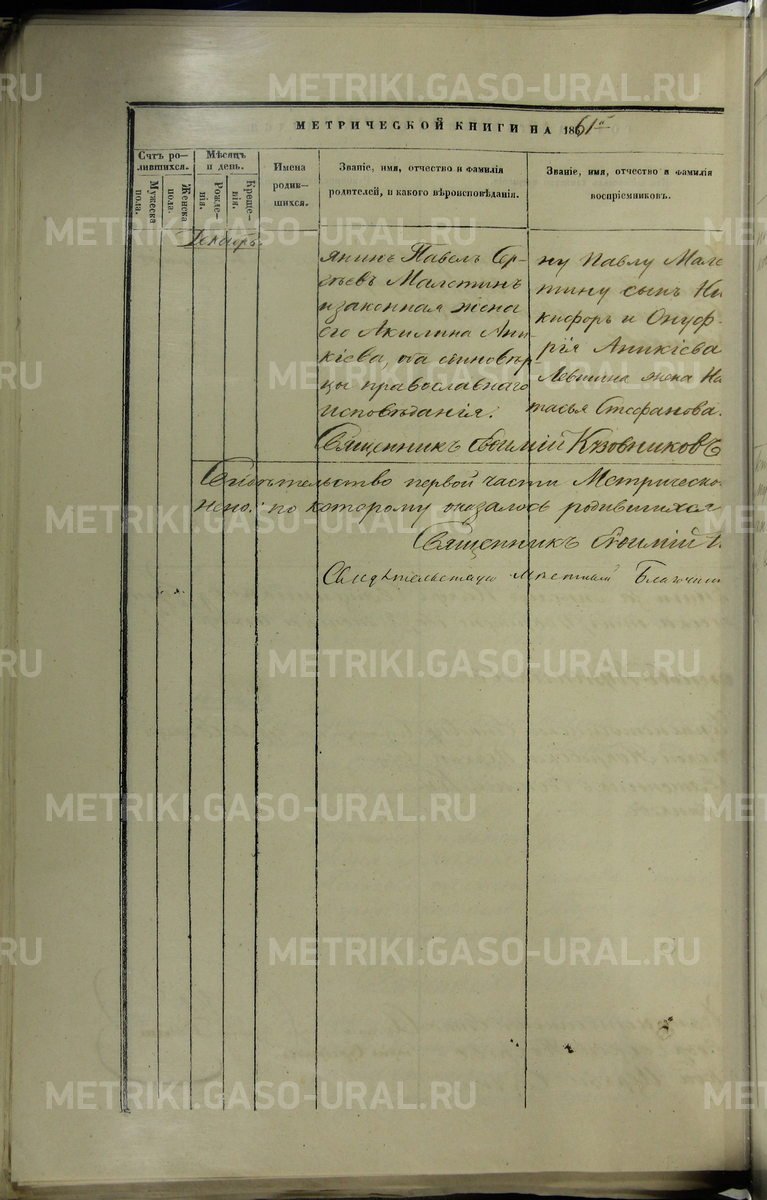 МЕТРИЧЕСКОЙ КНИГИ НА 1861й
Счтъ ро-
лившихся.
Мужеска
пола.
Женска
пола.
Мѣсяцъ
и день.
Рожде-
нія.
Креще-
нія.
Имена
родив-
шихся.
Званіе, имя, отчество и фамилія
родителей, и какого вѣроисповѣданія.
Званіе, имя, отчество и фамилія
воспріемниковъ.
Декабрь.
янинъ Павелъ Сер-
гѣевъ Малетинъ
и законная жена
его Акилина Ани-
кіева, оба единовѣр
цы православнаго
исповѣданія.
ну Павлу Мале
тину сынъ Ни
кифоръ и Онуф-
рія Аникіева
Левтина жена На
тасья Стефанова.
Священникъ Евѳимій Кузовниковъ
Свидѣтельство первой части Метрическо
по которому оказалось родившихся
Священникъ Евѳимій
Свидѣтельствую Мѣстный Благочин
METRIKI.GASO-URAL.RU